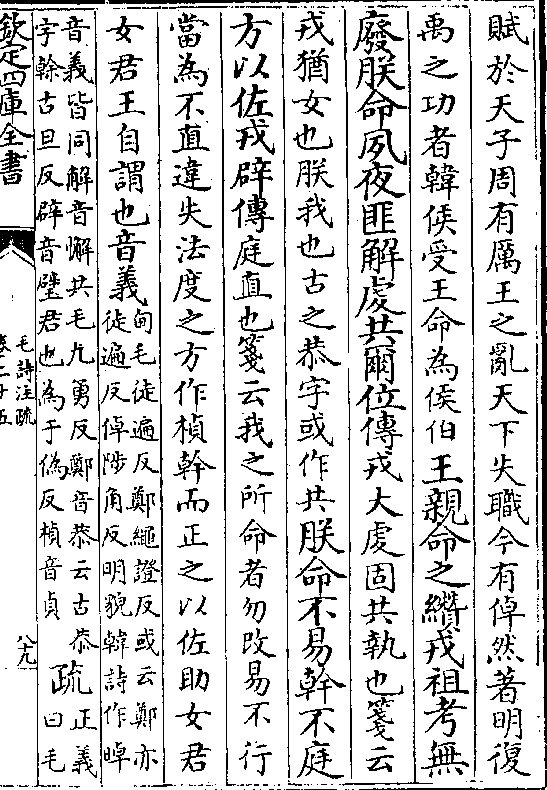 賦於天子周有厲王之亂天下失職今有倬然著明復
禹之功者韓侯受王命為侯伯王親命之纘戎祖考無
廢朕命夙夜匪解虔共爾位傳戎大虔固共執也箋云
戎猶女也朕我也古之恭字或作共朕命不易榦不庭
方以佐戎辟傳庭直也箋云我之所命者勿改易不行
當為不直違失法度之方作楨榦而正之以佐助女君
女君王自謂也音義甸毛徒遍反鄭繩證反或云鄭亦
徒遍反倬陟角反明貌韓詩作晫
音義皆同解音懈共毛九勇反鄭音恭云古恭
字榦古旦反辟音璧君也為于偽反楨音貞
疏正義
曰毛
欽定四庫全書
毛詩注疏
卷二十五
八十九